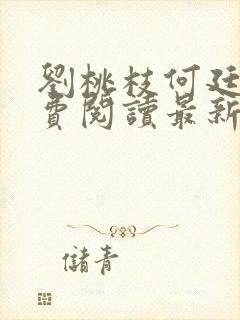 劉桃枝何廷
費閱讀最新
儲青